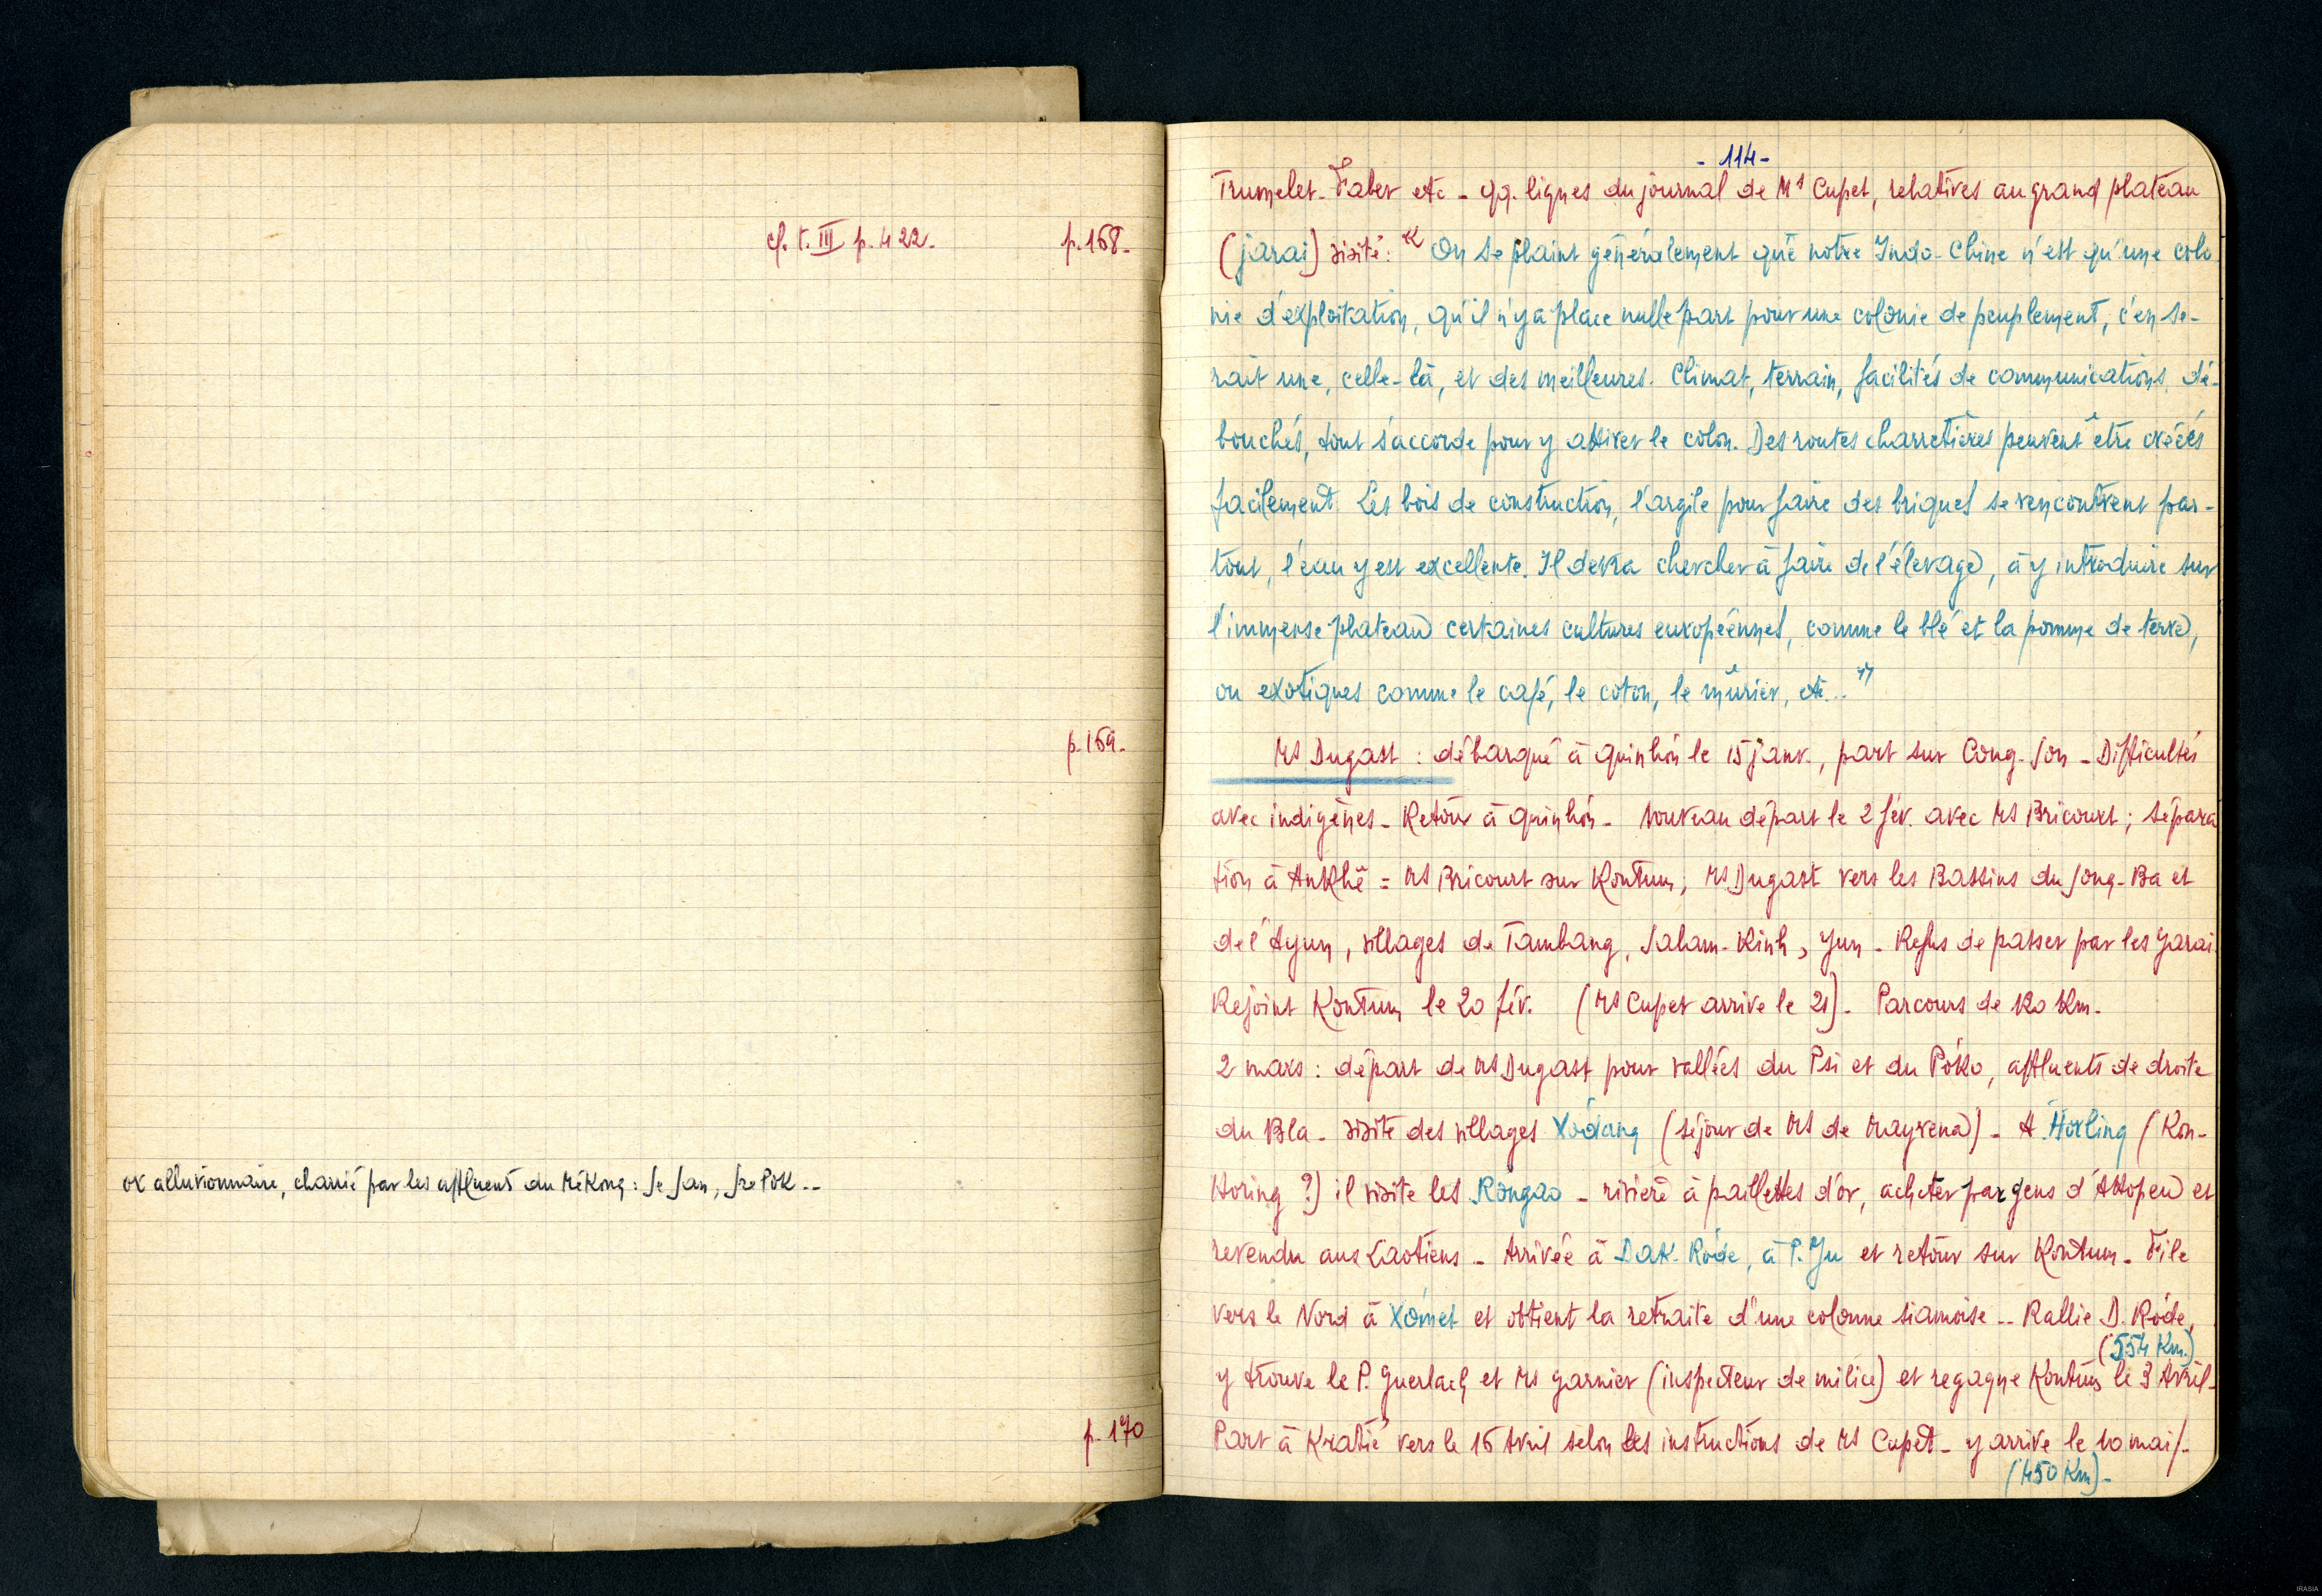 cf. t. III p. 422.
p. 168.
p. 169.
or alluvionnaire, charrié par les affluents du Mékong : Se San, Sre Pok --
p. 170
- 114 -
Trumelet-Faber etc - qq. lignes du journal de Ms Cupet, relatives au grand plateau
(jarai) visité : " On se plaint généralement que notre Indo-Chine n'est qu'une colo
nie d'exploitation, qu'il n'y a place nulle part pour une colonie de peuplement, c'en se-
rait une, celle-là, et des meilleures. Climat, terrain, facilités de communications, dé-
bouchés, tout s'accorde pour y attirer le colon. Des routes charretières peuvent être créées
facilement. Les bois de construction, l'argile pour faire des briques se rencontrent par-
tout, l'eau y est excellente. Il devra chercher à faire de l'élevage, à y introduire sur
l'immense plateau certaines cultures européennes, comme le blé et la pomme de terre,
ou exotiques comme le café, le coton, le mûrier, etc... "
Ms Dugast : débarqué à Quinhón le 15 janv., part sur Cong-Son - Difficultés
avec indigènes - Retour à Quinhón - Nouveau départ le 2 fév. avec Ms Bricourt ; sépara
tion à Ankhê = Ms Bricourt sur Kontum ; Ms Dugast vers les Bassins du Song-Ba et
de l'Ayun, villages de Tambang, Saham-Kinh, Yun - Refus de passer par les Jarai
Rejoint Kontum le 20 fév. (Ms Cupet arrive le 21). Parcours de 120 Km.
2 mars : départ de Ms Dugast pour vallées du Psi et du Póko, affluents de droite
du Bla - visite des villages Xódang (séjour de Ms de Mayrena) - A Horling (Kon-
Horing ?) il visite les Rongao - rivière à paillettes d'or, acheter par gens d'Attopeu et
revendu aux Laotiens - Arrivée à Dak-Róde, à P. Yu et retour sur Kontum - File
vers le Nord à Xómet et obtient la retraite d'une colonne siamoise -- Rallie D. Róde,
(554 Km.)
y trouve le P. Guerlach et Ms Garnier (inspecteur de milice) et regagne Kontum le 3 Avril-
Part à Kratié vers le 16 Avril selon les instructions de Ms Cupet - y arrive le 10 mai/-
(450 Km) -
IRASIA